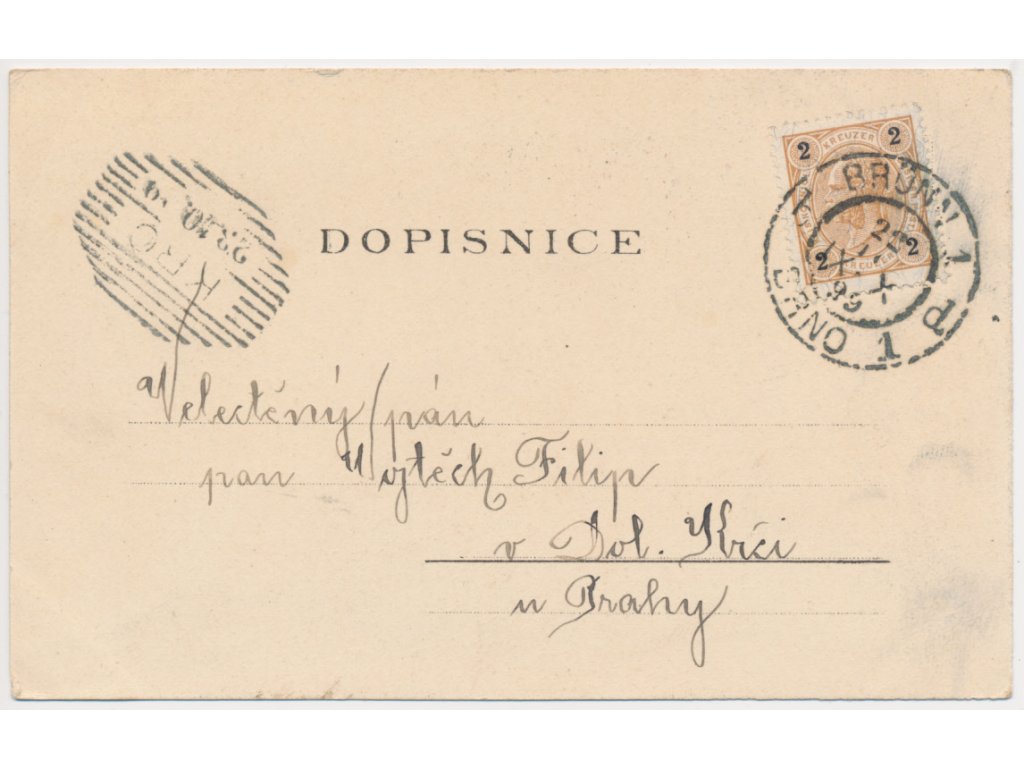 2 KREUZER 2
2 KREUZER 2
BRÜNN 1
22
X
99
BRNO 1
KRČ
23.10.
DOPISNICE
Velectěný pán
pan Vojtěch Filip
v Dol. Krči
u Prahy